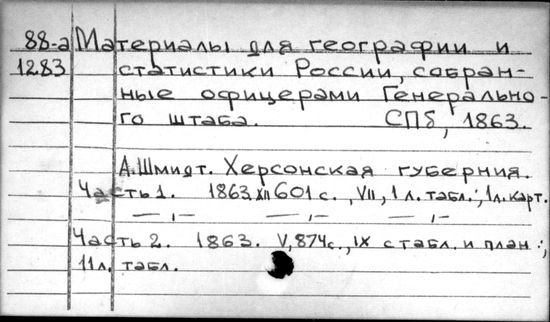 88-а Материалы для географии и
1283 статистики России, собран-
ные офицерами Генерально-
го штаба. СПб, 1863.
А. Шмидт. Херсонская губерния.
Часть 1. 1863. XII 601 с., VII, 1 л. табл.; 1 л. карт.
— „ — — „ — — „ —
Часть 2. 1863. V, 874 с., IX с табл. и план.;
11 л. табл.